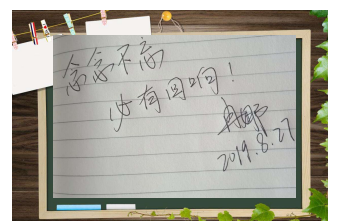 念念不忘
必有回响！
2019.8.27